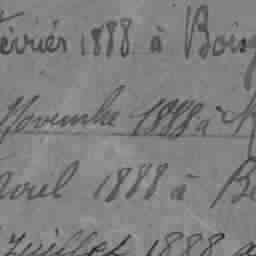 Février 1888 à Boisg
Novembre 1888 à
Avril 1888 à B
Juillet 1888 a